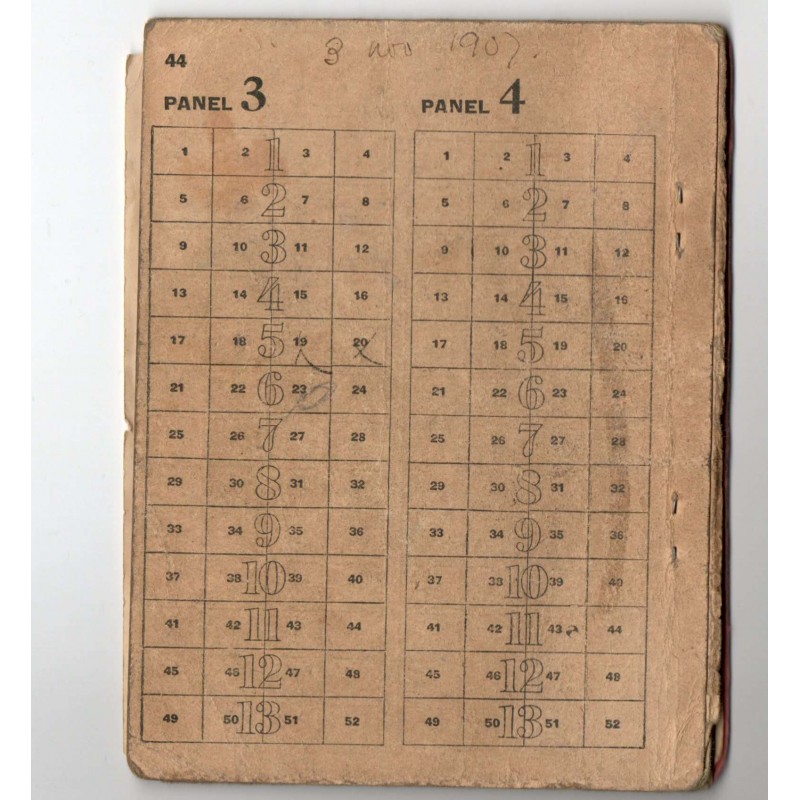 3 nov 1907.
44
PANEL 3 PANEL 4
1 2 1 3 4 1 2 1 3 4
5 6 2 7 8 5 6 2 7 8
9 10 3 11 12 9 10 3 11 12
13 14 4 15 16 13 14 4 15 16
17 18 5 19 20 17 18 5 19 20
21 22 6 23 24 21 22 6 23 24
25 26 7 27 28 25 26 7 27 28
29 30 8 31 32 29 30 8 31 32
33 34 9 35 36 33 34 9 35 36
37 38 10 39 40 37 38 10 39 40
41 42 11 43 44 41 42 11 43 44
45 46 12 47 48 45 46 12 47 48
49 50 13 51 52 49 50 13 51 52